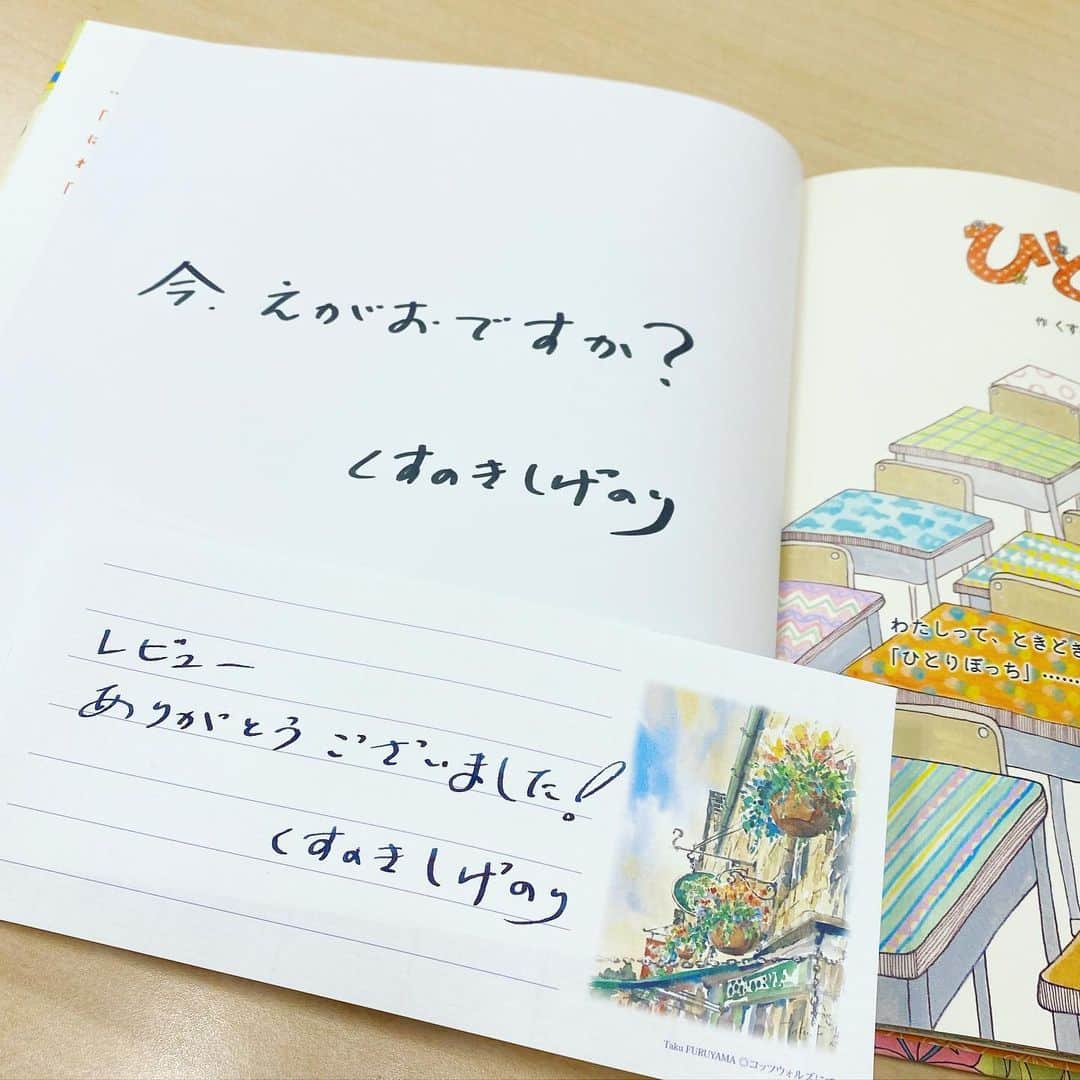 今、えがおですか?
くすのきしげのり
レビュー
ありがとうございました!
くすのきしげのり
Taku FURUYAMA ©コッツウォルズに
ひと
作 くす
わたしって、ときどき
「ひとりぼっち」……